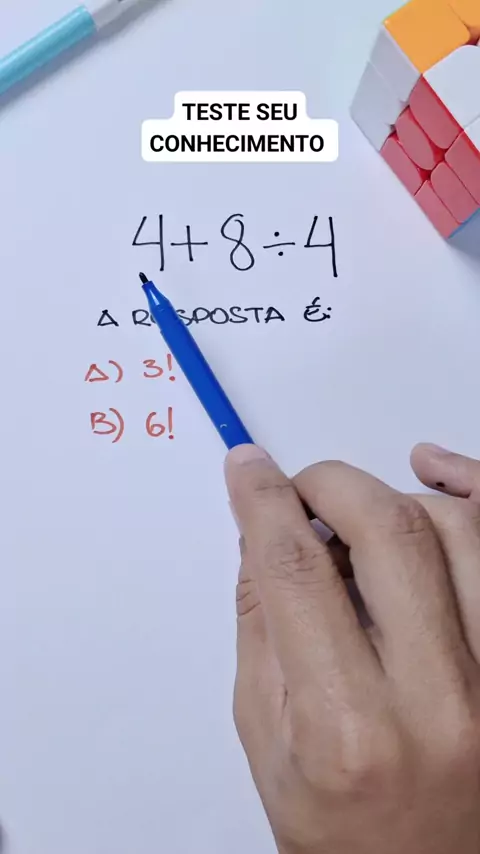 TESTE SEU
CONHECIMENTO
4+8÷4
A RESPOSTA É:
A) 3!
B) 6!